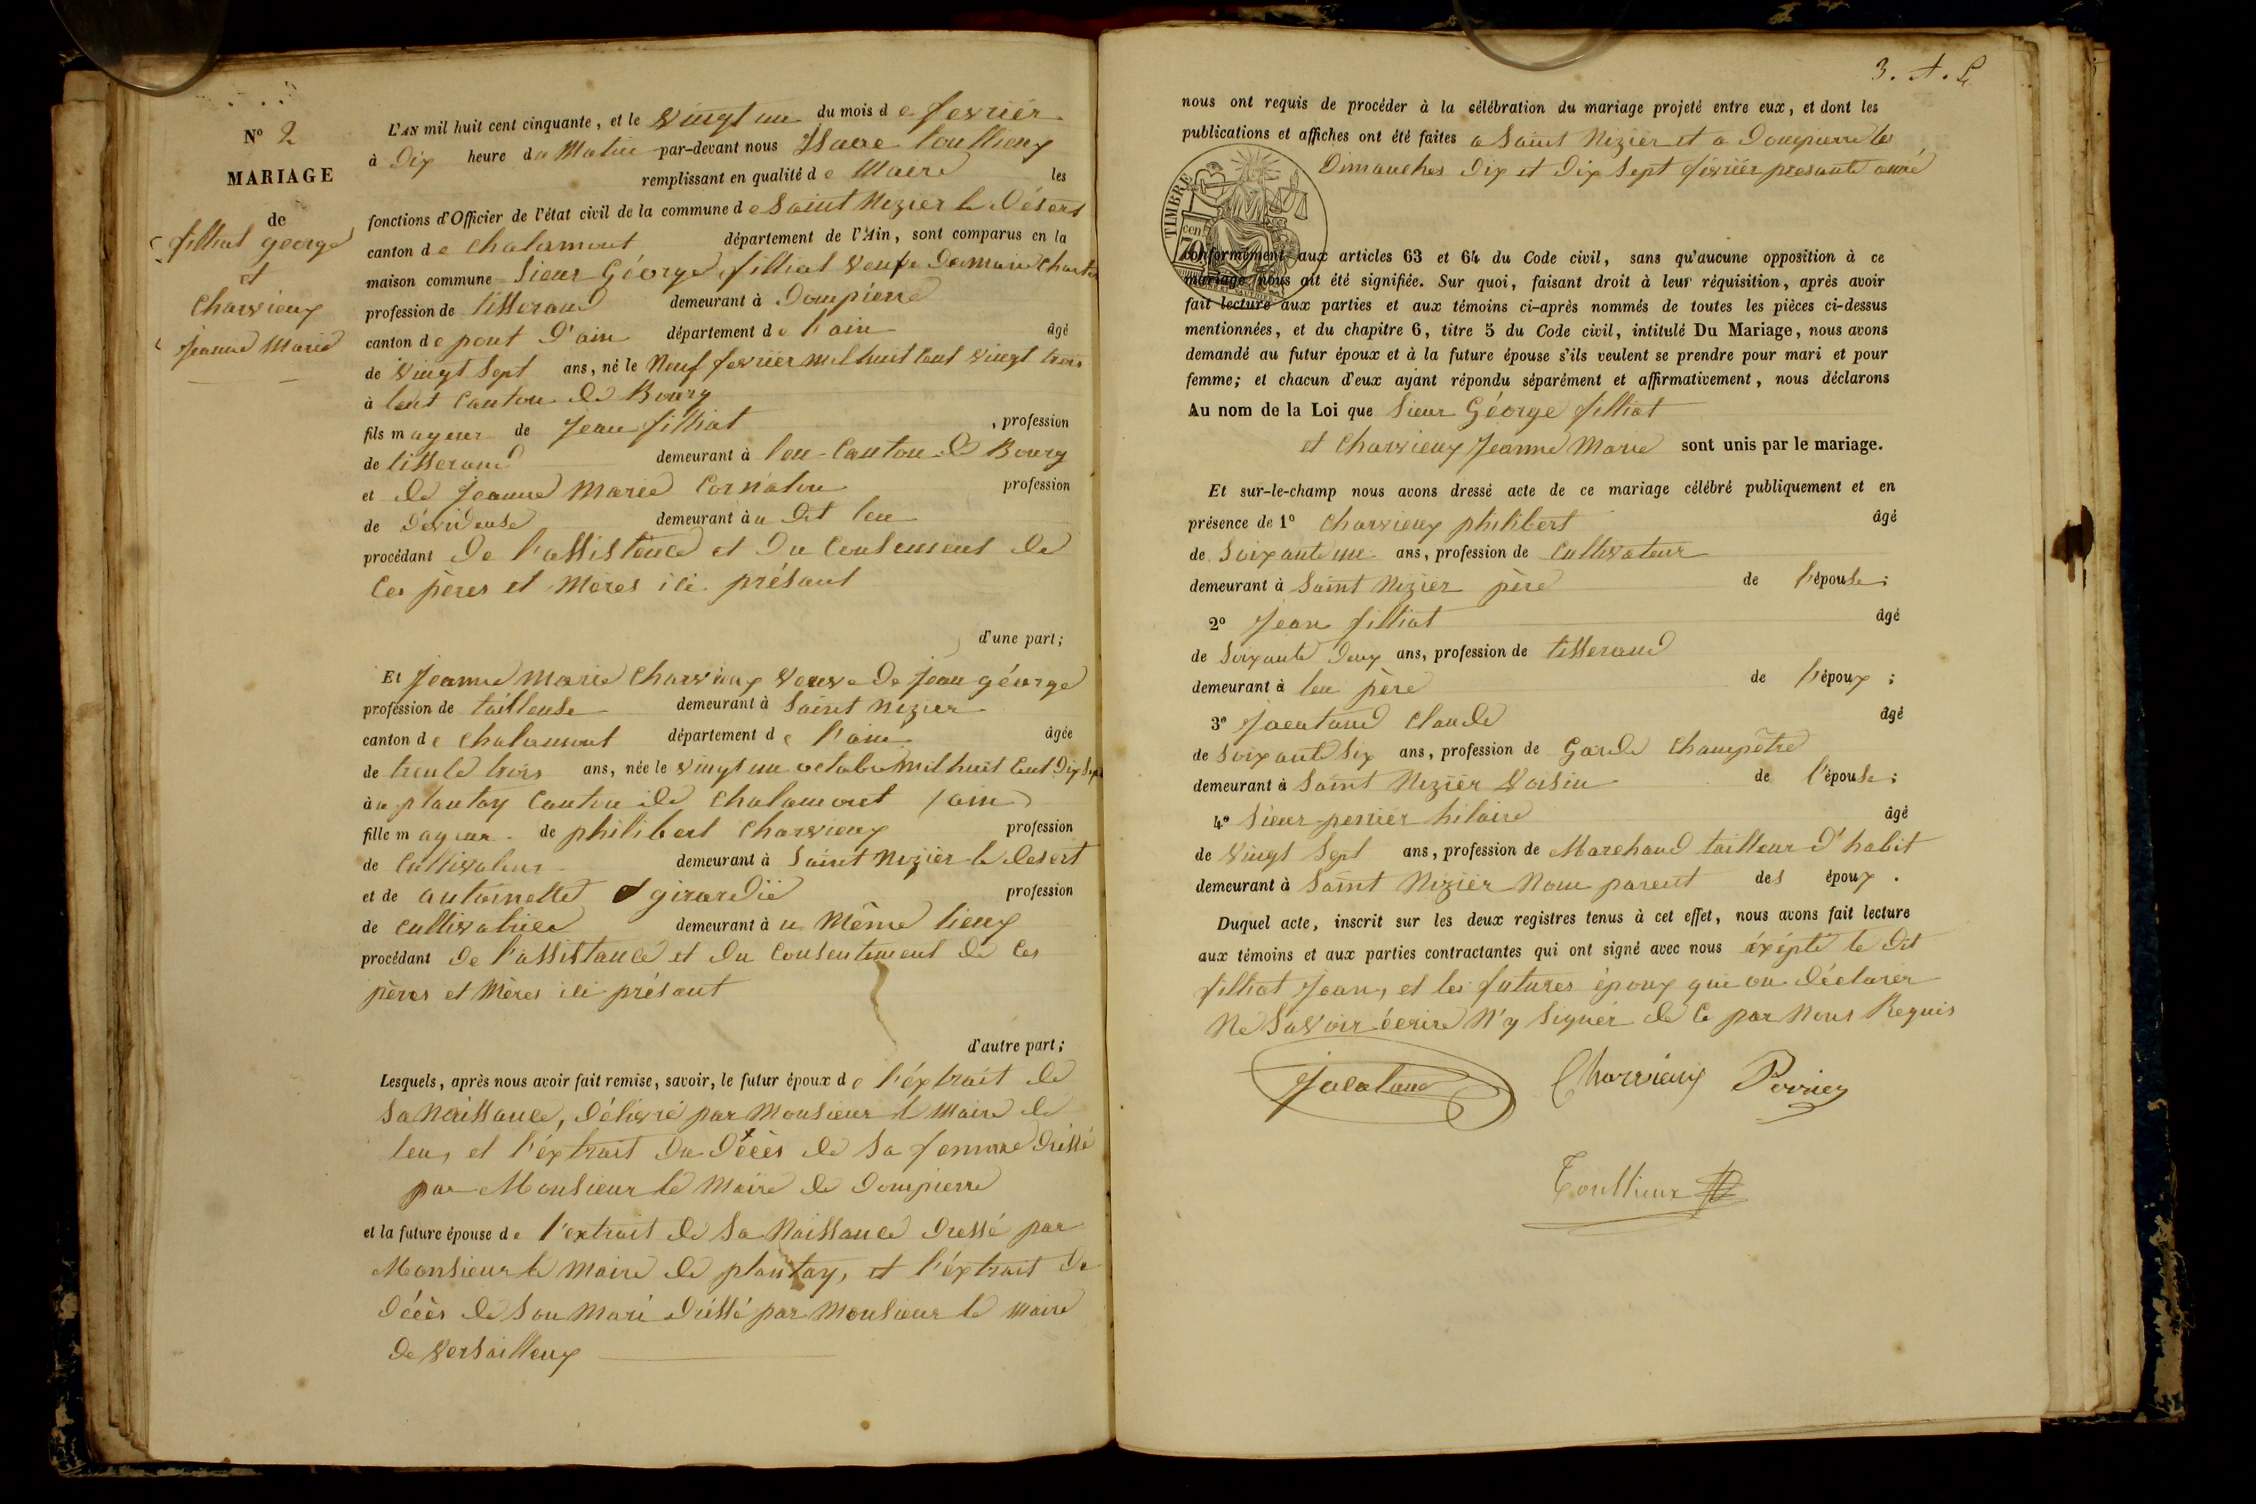 N° 2
MARIAGE
de
filliat george
et
Charvieux
Jeanne Marie
L'AN mil huit cent cinquante, et le vingt un du mois de fevriér
à Dix heure du Matin par-devant nous Isaac toullieux
remplissant en qualité de Maire les
fonctions d'Officier de l'état civil de la commune de Saint Nizier le Désert
canton de chalamont département de l'Ain, sont comparus en la
maison commune Sieur Géorge filliat veufe De marie
profession de tisserand demeurant à Dompierre
canton de pont D'ain département de l'ain âgé
de vingt Sept ans, né le Neuf fevriér mil huit Cent vingt trois
à lent Canton de Bourg
fils mayeur de Jean filliat , profession
de tisserand demeurant à len Canton de Bourg
et de Jeanne Marie Cornaton profession
de Dévideuse demeurant àu Dit len
procédant De l'assistence et Du Consement de
Ces pères et Mères ici présant
d'une part;
Et Jeanne Marie Charvieux veuve De Jean géorge
profession de tailleuse demeurant à Saint Nizier
canton de Chalamont département de l'ain âgée
de trente trois ans, née le vingt un octobre mil huit Cent Dix Sept
àu plantay Canton de Chalamont (ain)
fille mayeur de philibert Charvieux profession
de Cultivateur demeurant à Saint Nizier le Desert
et de antoinette girardie profession
de cultivatrice demeurant àu Même lieux
procédant de l'assistance et du Consentement de Ces
pères et Mères ici présant
d'autre part;
Lesquels, après nous avoir fait remise, savoir, le futur époux de l'éxtrait de
Sa Naissance, Délivré par Monsieur le Maire de
len, et l'éxtrait Du Décès de Sa femme Dréssé
par Monsieur le Maire de Dompierre
et la future épouse de l'extrait de Sa Naissance Dressé par
Monsieur le Maire de plantay, et l'éxtrait De
Décès de Son Mari Dréssé par Monsieur le Maire
De Versailleux
3. A. L
nous ont requis de procéder à la célébration du mariage projeté entre eux, et dont les
publications et affiches ont été faites a Saint Nizier et a Dompierre les
Dimanches Dix et Dix Sept févriér presante année
TIMBRE
70 cen
conformément aux articles 63 et 64 du Code civil, sans qu'aucune opposition à ce
mariage nous ait été signifiée. Sur quoi, faisant droit à leur réquisition, après avoir
fait lecture aux parties et aux témoins ci-après nommés de toutes les pièces ci-dessus
mentionnées, et du chapitre 6, titre 5 du Code civil, intitulé Du Mariage, nous avons
demandé au futur époux et à la future épouse s'ils veulent se prendre pour mari et pour
femme; et chacun d'eux ayant répondu séparément et affirmativement, nous déclarons
Au nom de la Loi que Sieur Géorge filliat
et Charvieux Jeanne Marie sont unis par le mariage.
Et sur-le-champ nous avons dressé acte de ce mariage célébré publiquement et en
présence de 1° Charvieux philibert âgé
de Soixante un ans, profession de Cultivateur
demeurant à Saint Nizier père de l'épouse;
2° Jean filliat âgé
de Soixante Deux ans, profession de tisserand
demeurant à len père de l'époux ;
3° Jacataud Claude âgé
de Soixante Six ans, profession de Garde Champêtre
demeurant à Saint Nizier Voisin de l'épouse;
4° Sieur perriér hilaire âgé
de vingt Sept ans, profession de Marchand tailleur D'habit
demeurant à Saint Nizier Nom parent des époux .
Duquel acte, inscrit sur les deux registres tenus à cet effet, nous avons fait lecture
aux témoins et aux parties contractantes qui ont signé avec nous éxépté le Dit
filliat Jean, et les futures époux qui on Déclarer
Ne Savoir écrire N'y Signér de Ce par Nous Requis
Jacataud Charvieux Perrier
Toullieux